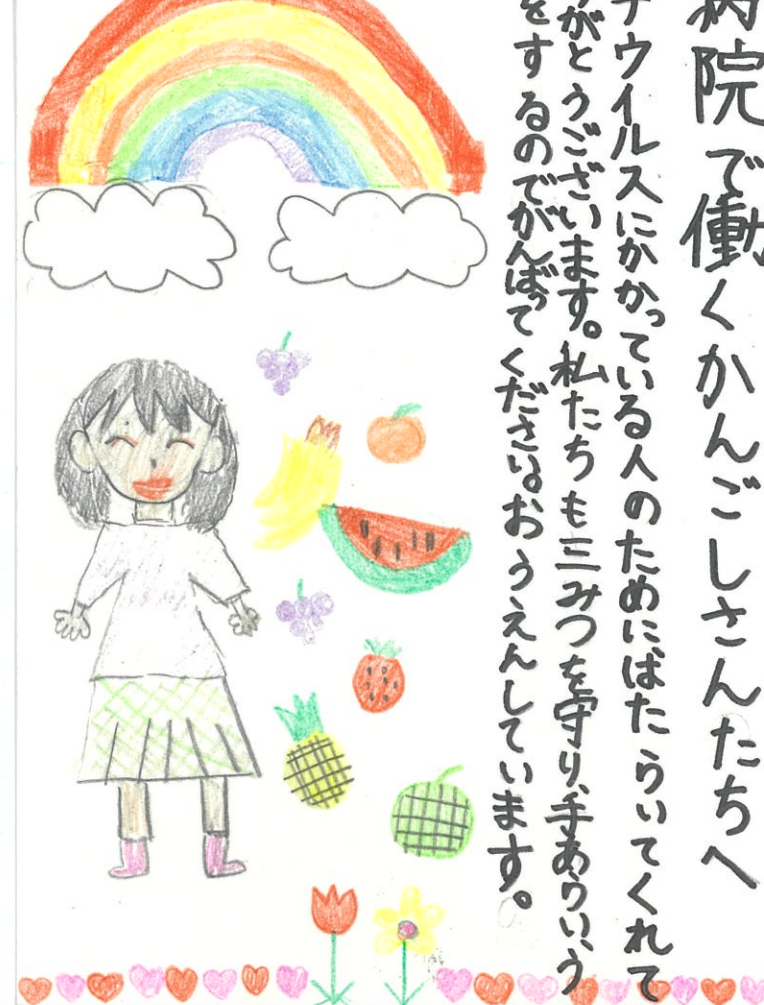 病院で働くかんごしさんたちへ
ナウイルスにかかっている人のためにはたらいてくれて
がとうございます。私たちも三みつを守り、手あらい、う
をするのでがんばってください。おうえんしています。